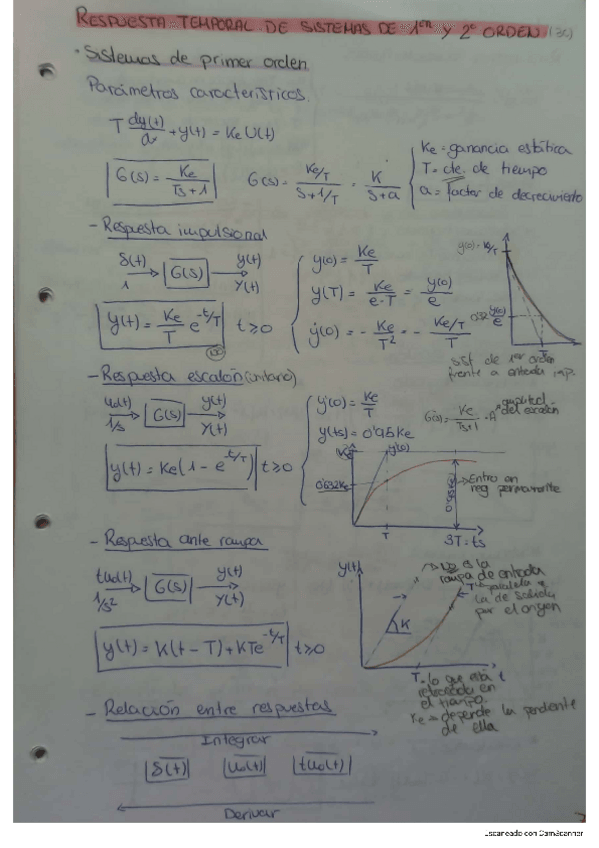 RESPUESTA TEMPORAL DE SISTEMAS DE 1er Y 2º ORDEN
· Sistemas de primer orden
Parámetros característicos.
T dy(t)/dt + y(t) = Ke U(t)
G(s) = Ke/(Ts+1)   G(s) = (Ke/T)/(s+1/T) = K/(s+a)
Ke = ganancia estática
T = cte. de tiempo
a = factor de decrecimiento
- Respuesta impulsional
δ(t) 1 → G(s) → y(t) Y(t)
y(t) = Ke/T e^(-t/T)   t ≥ 0
y(0) = Ke/T
y(T) = Ke/(e·T) = y(0)/e
ẏ(0) = - Ke/T² = - (Ke/T)/T
y(0) = Ke/T
y(0)/e
T
sist de 1er orden
frente a entrada imp.
- Respuesta escalón (unitario)
u₀(t) 1/s → G(s) → y(t) Y(t)
y(t) = Ke(1 - e^(-t/T))   t ≥ 0
ẏ(0) = Ke/T
y(ts) = 0'95Ke
G(s) = Ke/(Ts+1) · A
amplitud
del escalón
Ke
ẏ(0)
0'632Ke
0'95Ke
→ Entro en
reg permanente
T
3T = ts
- Respuesta ante rampa
tu₀(t) 1/s² → G(s) → y(t) Y(t)
y(t) = K(t - T) + KTe^(-t/T)   t ≥ 0
y(t)
es la
rampa de entrada
paralela a
la de salida
por el origen
K
T
t
T = lo que está
retrasada en
el tiempo.
Ke = depende la pendiente
de ella
- Relación entre respuestas
Integrar
δ(t)   u₀(t)   tu₀(t)
Derivar
Escaneado con CamScanner